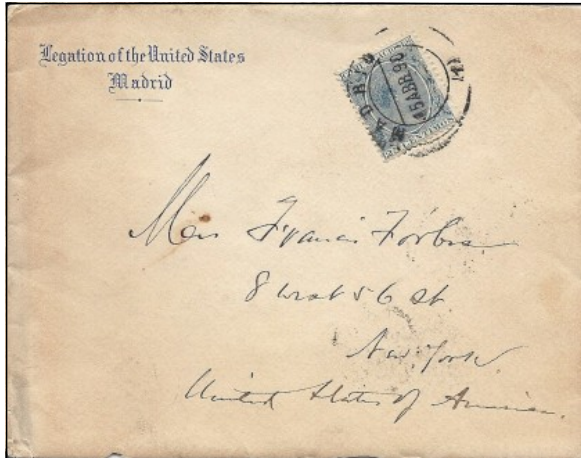 Legation of the United States
Madrid
MADRID
15 ABR 90
25 CENTIMOS
Francis Forbes
8 West 56 St
New York
United States of America.